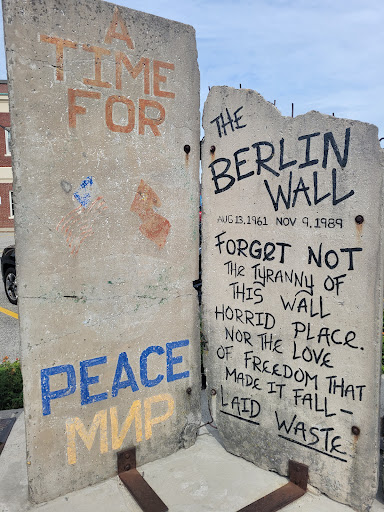 A
TIME
FOR
PEACE
МИР
THE
BERLIN
WALL
AUG 13, 1961 NOV 9, 1989
FORGET NOT
THE TYRANNY OF
THIS WALL
HORRID PLACE.
NOR THE LOVE
OF FREEDOM THAT
MADE IT FALL –
LAID WASTE